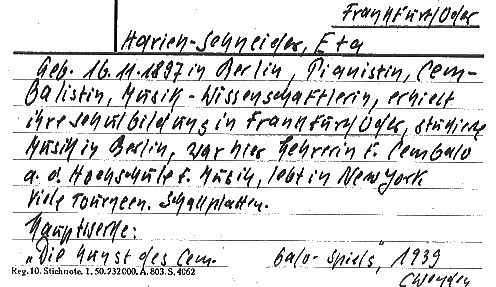 Frankfurt/Oder
Harich-Schneider, Eta
Geb. 16.11.1897 in Berlin, Pianistin, Cem-
balistin, Musik-Wissenschaftlerin, erhielt
ihre Schulbildung in Frankfurt/Oder, studierte
Musik in Berlin, war hier Lehrerin f. Cembalo
a. d. Hochschule f. Musik, lebt in New York
Viele Tourneen. Schallplatten.
Hauptwerke:
"Die Kunst des Cem- balo-Spiels", 1939
Reg. 10. Stichnote. 1. 50. 732000. A. 803. S. 4062